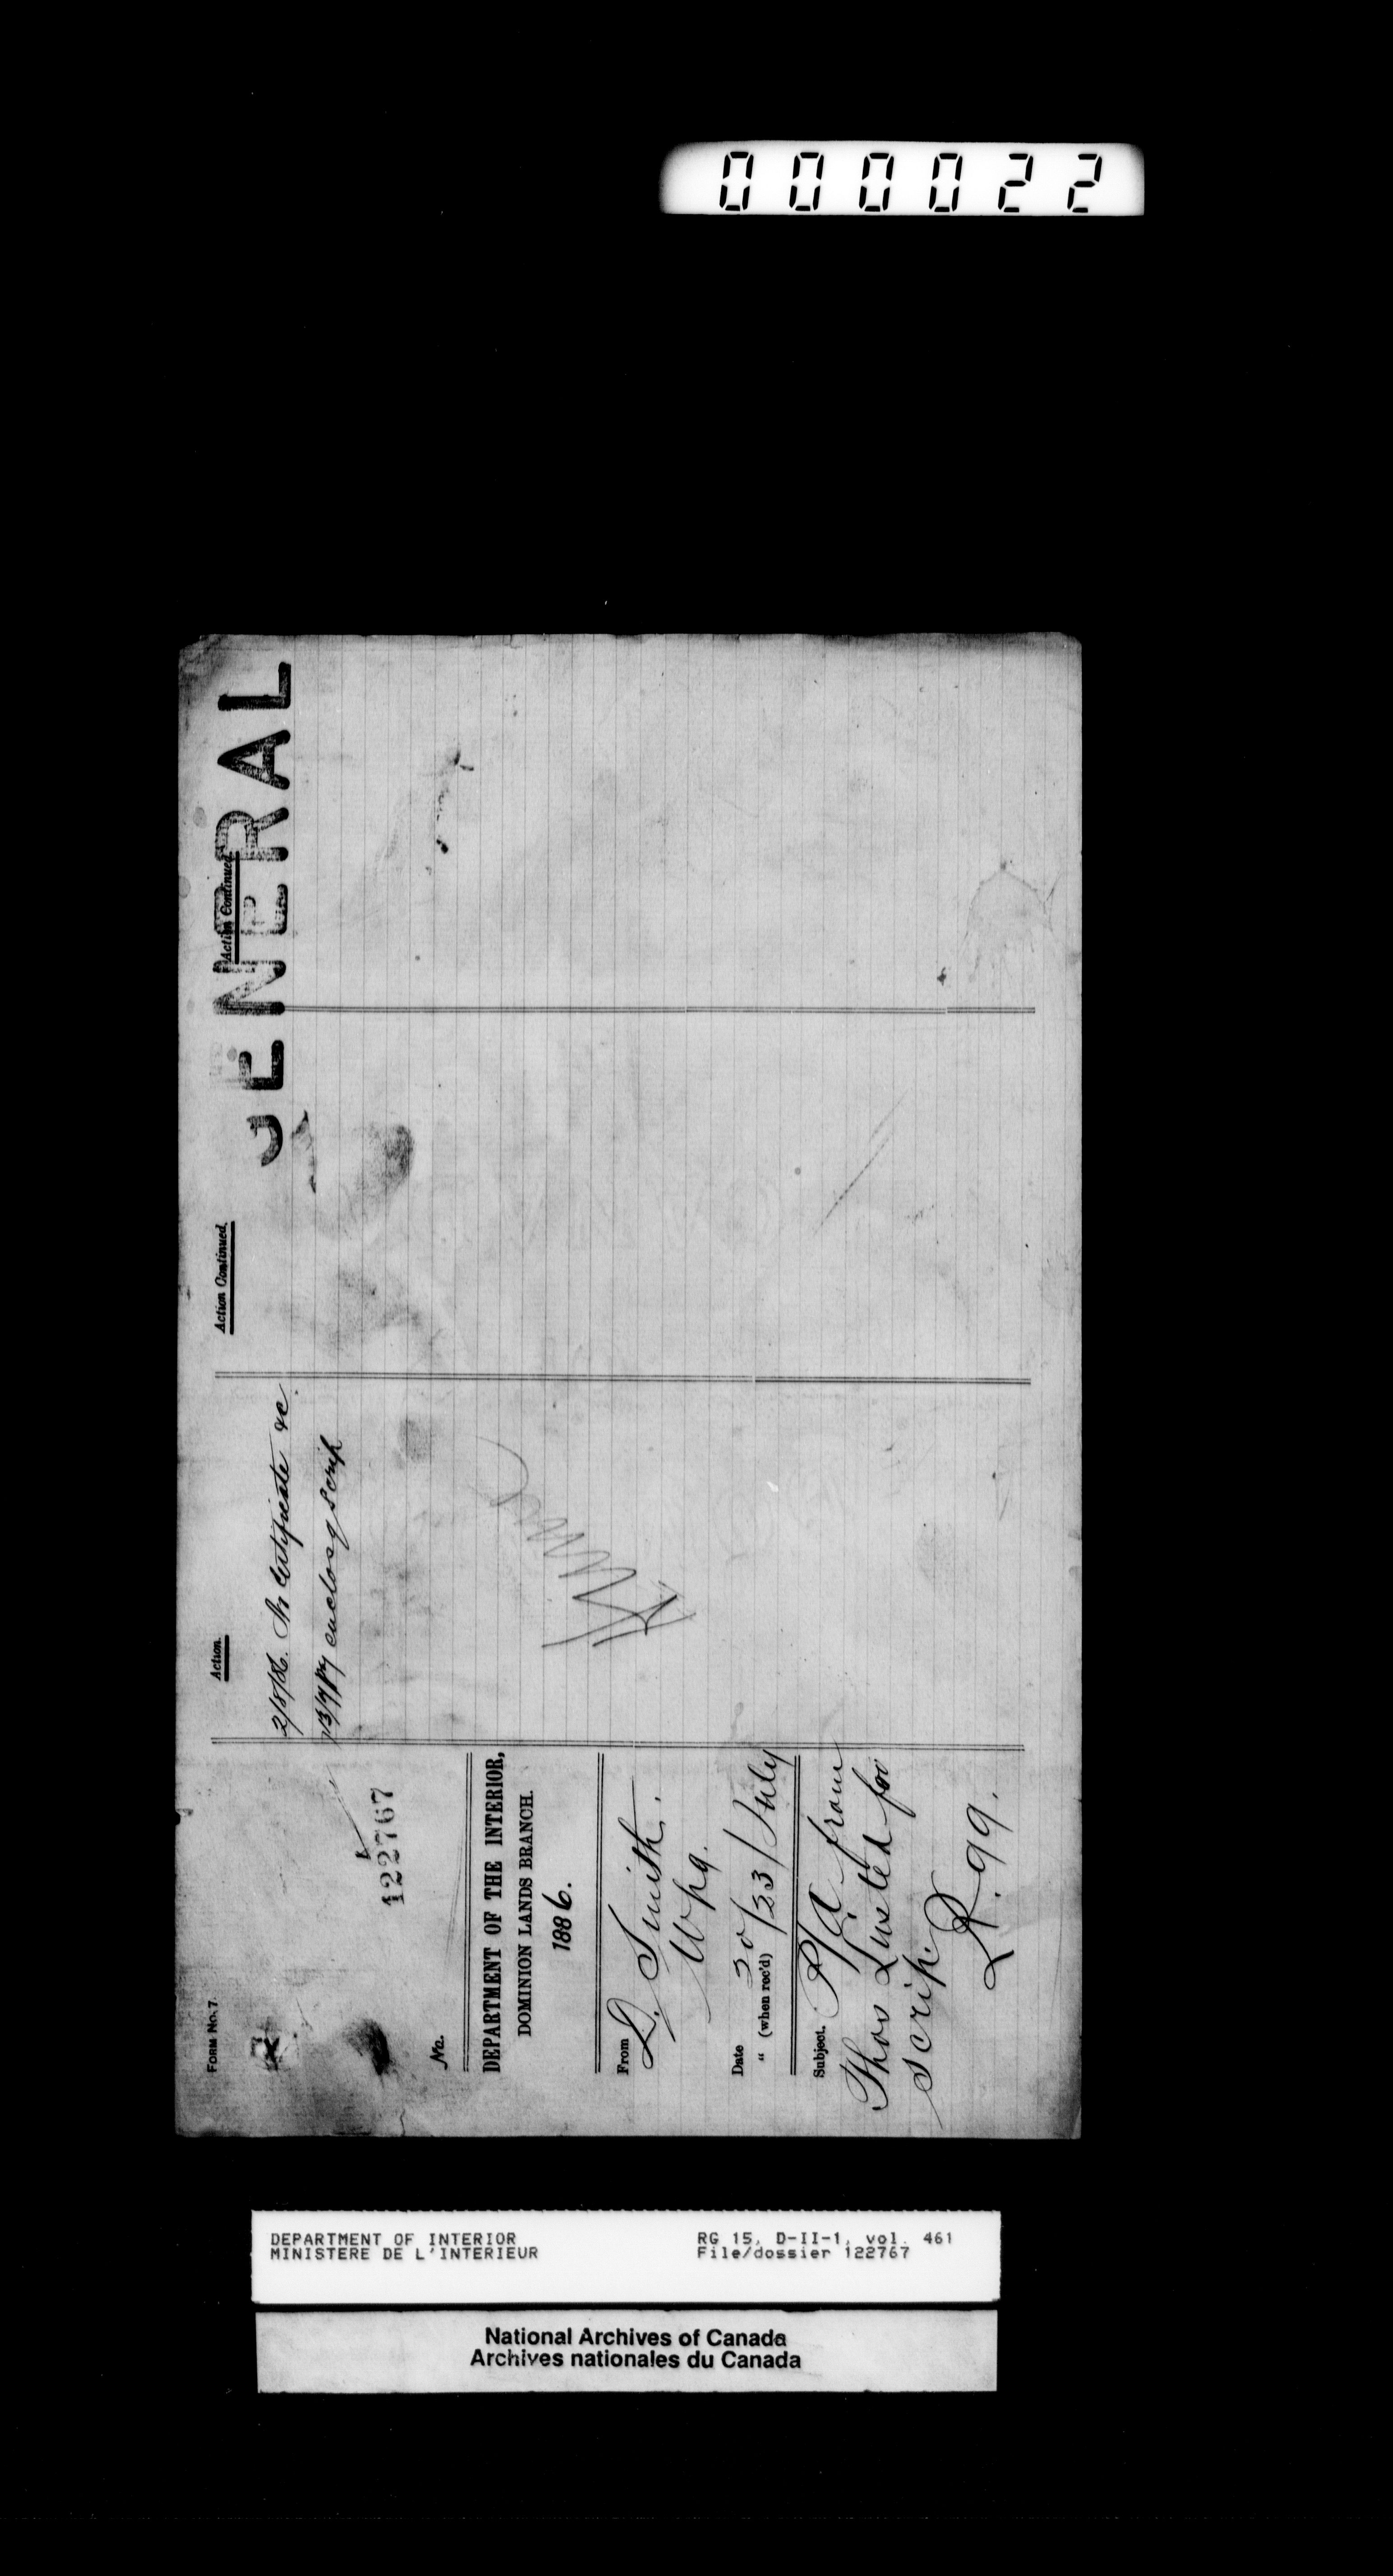 000022
FORM No. 7
R
122767
No.
DEPARTMENT OF THE INTERIOR,
DOMINION LANDS BRANCH.
1886.
From
D. Smith.
Wpg.
Date 20/23/July
" (when rec'd)
Subject. P/A from
Thos Linsted for
scrip.
R. 99.
Action.
2/8/86. In certificate &c.
enclosg scrip
Action Continued.
Action Continued.
GENERAL
DEPARTMENT OF INTERIOR
MINISTERE DE L'INTERIEUR
RG 15, D-II-1, vol. 461
File/dossier 122767
National Archives of Canada
Archives nationales du Canada